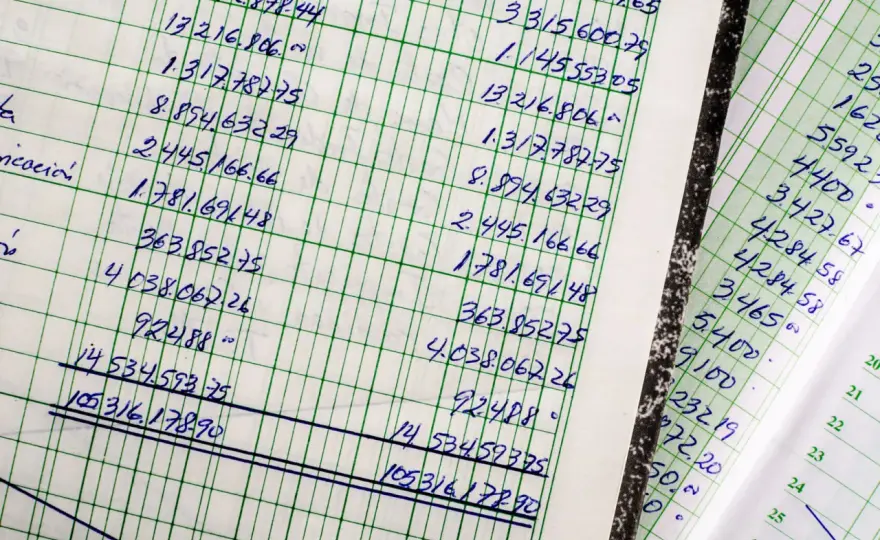 .878.44
13 216.806.00
1.317.787.75
8.894.632.29
2 445.166.66
nicación
1.781.691.48
363.852.75
4 038.067.26
92488 00
14 534.593.75
105316.178.90
3 315 600.79
1.145553.05
13 216.806.00
1.317.787.75
8.894.632.29
2.445.166.66
1 781.691.48
363.852.75
4.038.067.26
92.488 0
14 534.593.75
105316.178.90
5592
4400 .
3427.67
4284.58
4284 58
3465 00
5.400 .
9100 .
232.19
72.20
50.00
0 .
20
21
22
23
24
25